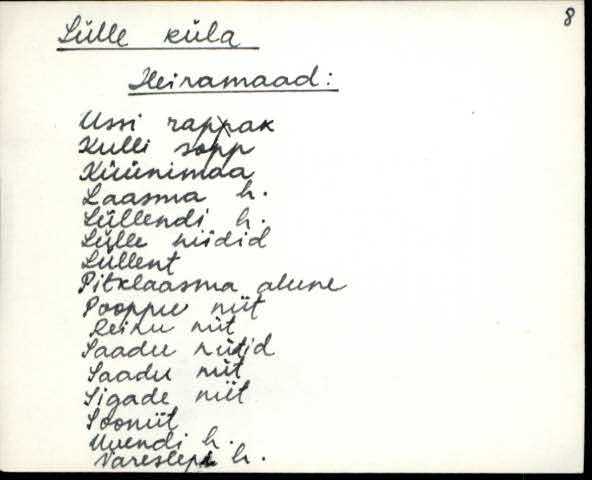 8
Lülle küla
Heinamaad:
Ussi rappak
Kulli sopp
Küünimaa
Laasma h.
Lüllendi h.
Lülle niidid
Lüllent
Pitklaasma alune
Pooppu niit
Reinu niit
Saadu niidid
Saadu niit
Sigade niit
Sooniit
Uuendi h.
h.